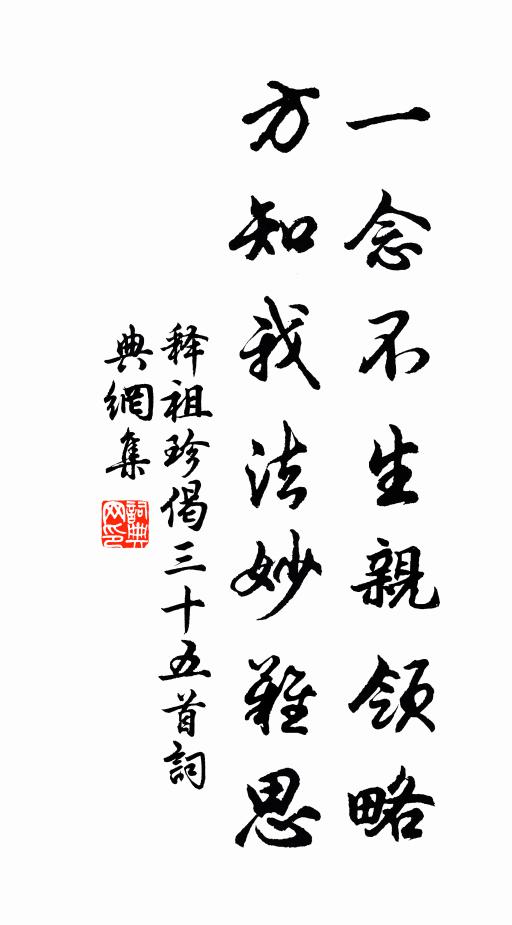 一念不生親領略
方知我法妙難思
释祖珍偈三十五首詞
典網集
詞典
网印